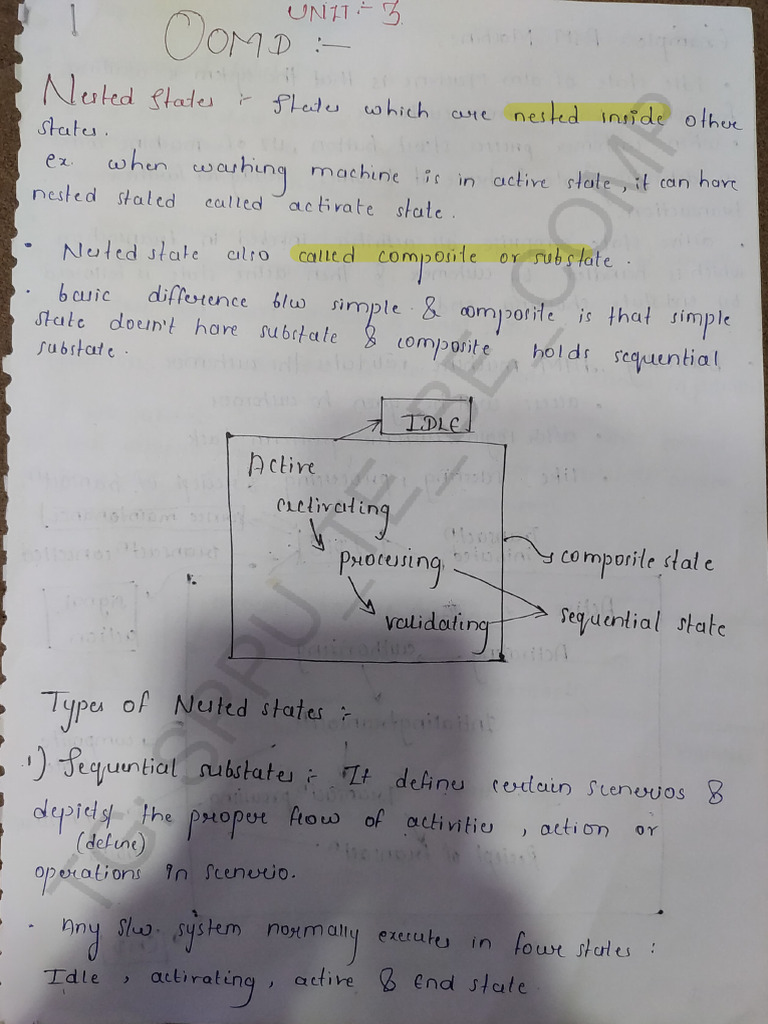 1
UNIT :- 3
OOMD :-
Nested States :- States which are nested inside other
states.
ex. when washing machine is in active state, it can have
nested stated called activate state.
• Nested state also called composite or substate.
• basic difference b/w simple & composite is that simple
state doesn't have substate & composite holds sequential
substate.
IDLE
Active
activating
processing
validating
composite state
sequential state
Types of Nested states :-
1) Sequential substates :- It defines certain scenerios &
depicts the proper flow of activities, action or
(define)
operations in scenerio.
• Any s/w system normally executes in four states :
Idle, activating, active & end state
TG: SPPU_TE_BE_COMP